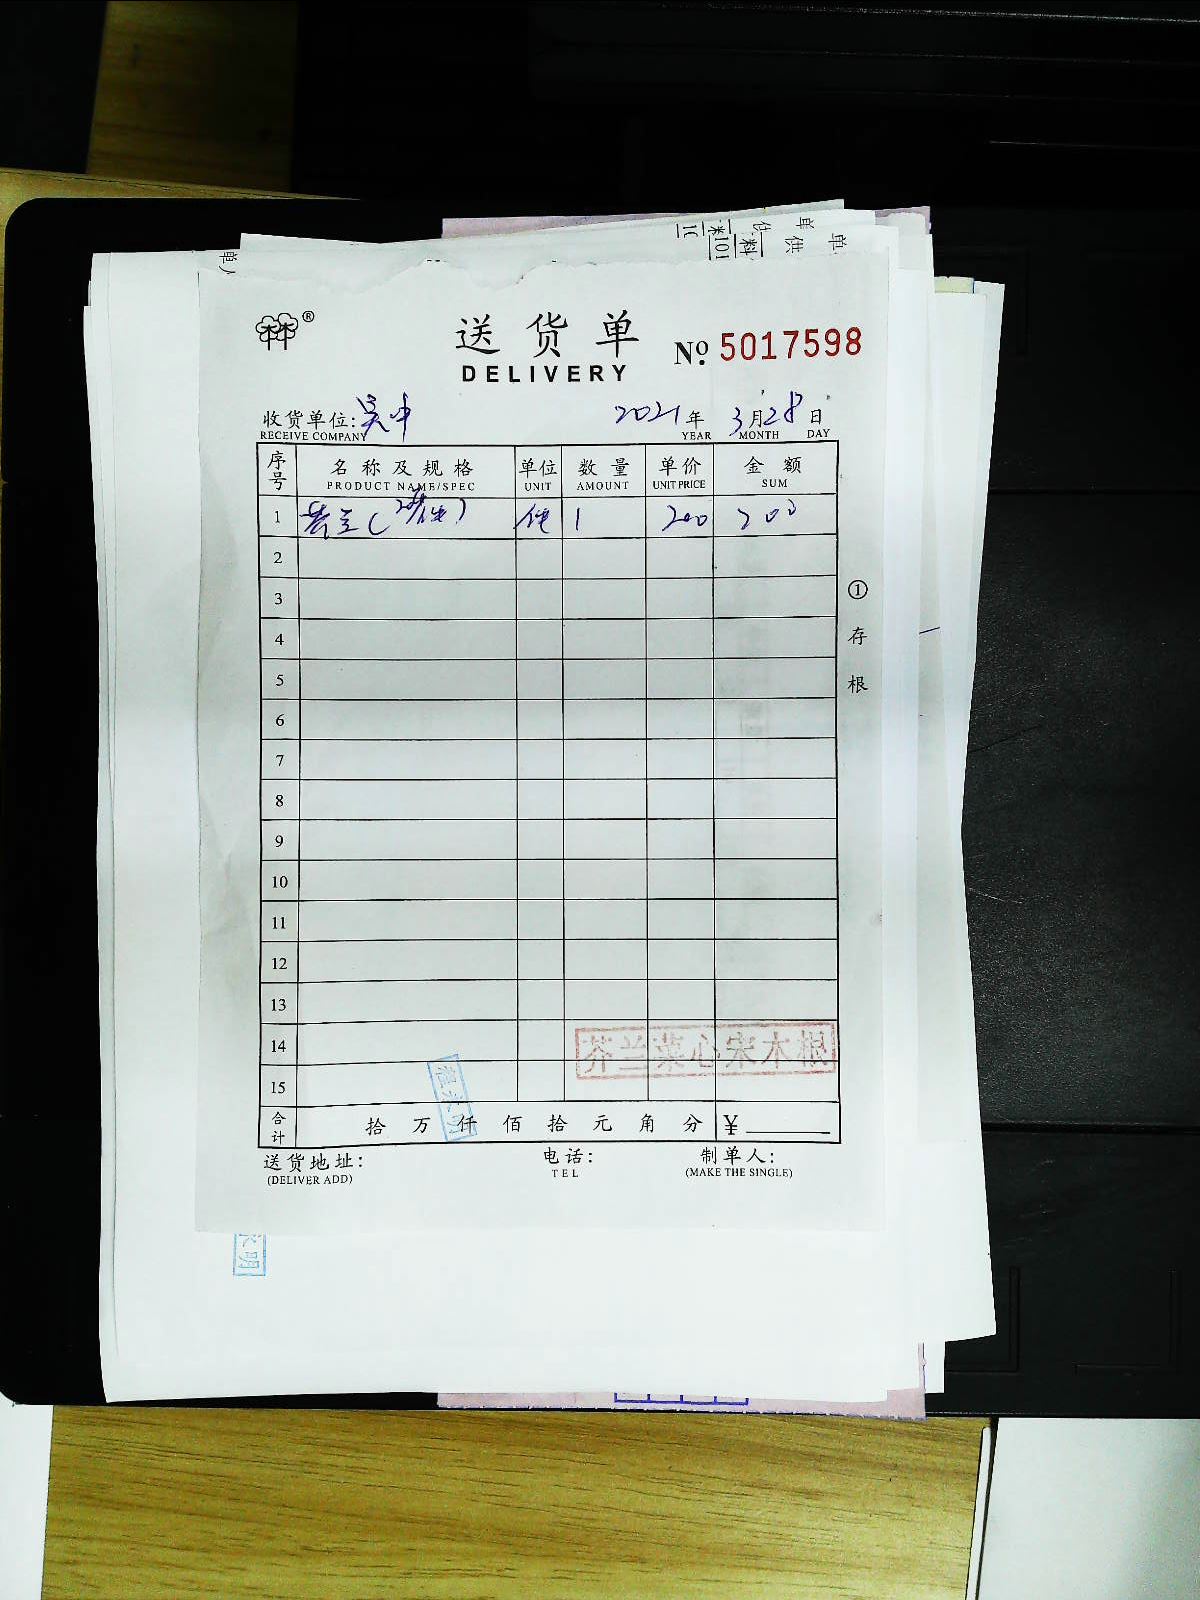 送货单
DELIVERY
№ 5017598
收货单位: 吴中 2021年 3月28日
RECEIVE COMPANY YEAR MONTH DAY
序号 名称及规格 单位 数量 单价 金额
PRODUCT NAME/SPEC UNIT AMOUNT UNIT PRICE SUM
1 件 1 200 200
2
3
4
5
6
7
8
9
10
11
12
13
14
15
芥兰菜心宋木湖
合计 拾 万 仟 佰 拾 元 角 分 ¥
送货地址: 电话: 制单人:
(DELIVER ADD) TEL (MAKE THE SINGLE)
①存根